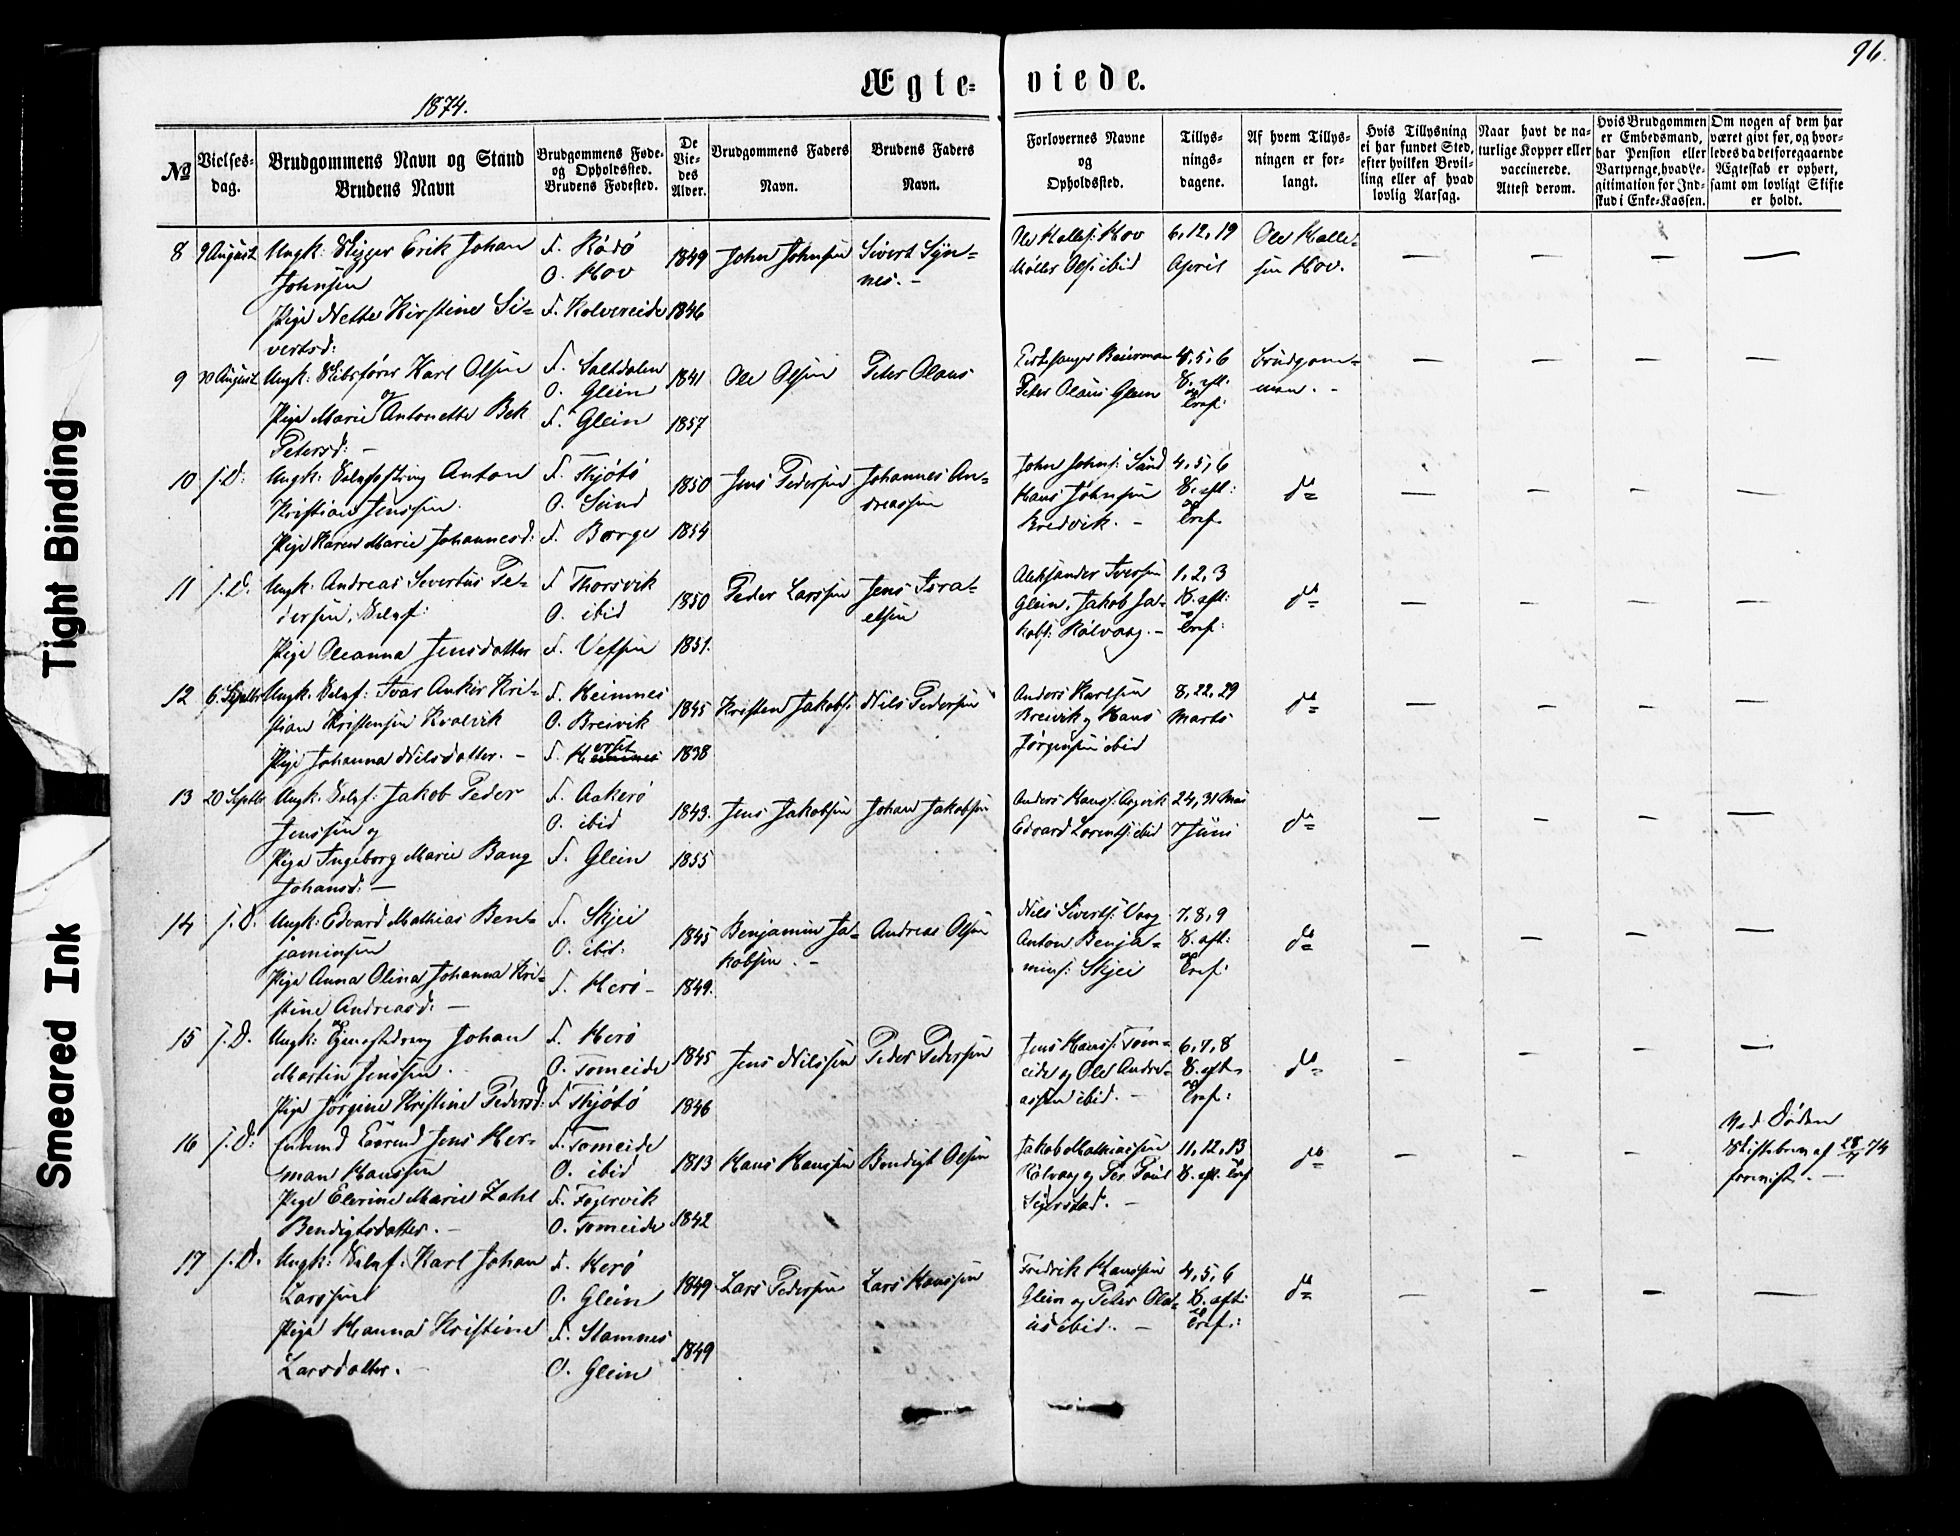 96.
Ægte= viede.
1874.
№
Vielses-
dag.
Brudgommens Navn og Stand
Brudens Navn
Brudgommens Føde-
og Opholdssted.
Brudens Fødested.
De
Vie-
des
Alder.
Brudgommens Faders
Navn.
Brudens Faders
Navn.
Forlovernes Navne
og
Opholdssted.
Tillys-
nings-
dagene.
Af hvem Tillys-
ningen er for-
langt.
Hvis Tillysning
ei har fundet Sted,
efter hvilken Bevil-
ling eller af hvad
lovlig Aarsag.
Naar havt de na-
turlige Kopper eller
vaccinerede.
Attest derom.
Hvis Brudgommen
er Embedsmand,
har Pension eller
Vartpenge, hvad Le-
gitimation for Ind-
skud i Enke-Kassen.
Om nogen af dem har
været givt før, og hvor-
ledes da det foregaaende
Ægteskab er ophørt,
samt om lovligt Skifte
er holdt.
8 9 August Ungk: Erik Johan
Johnsen
Pige Nette Kirstine Si-
vertsd:
F. Rödö
O. Hov
F. Kolvereide
1849
1846
John Johnsen
Sivert Syn-
nes. -
Ole Hallesf: Hov
Möller Olsf: ibid
6, 12, 19
April
Ole Halle-
sen Hov.
9 30 August Ungk: Skibsfører Karl Olsen
og
Pige Marie Antonette Bek
Petersd: -
F. Saltdalen
O. Glein
F. Glein
1841
1857
Ole Olsen
Peter Olaus
Peter Olaus Glein
4, 5, 6
S. eft:
Brudgom-
men. -
10 s.D: Ungk: Anton
Kristian Jenssen.
Pige Karen Marie Johannesd:
F. Thjötö
O. Sund
F. Borge
1850
1854
Jens Pedersen
Johannes An-
dreassen
John Johns: Sund
Hans Johnsen
Bredvik. -
4, 5, 6
S. eft:
do
11 s.D. Ungk: Andreas Severtus Pe-
dersen,
Pige Oleanna Jensdatter
F. Thorsvik
O. ibid
F. Vefsen
1850
1851.
Peder Larssen
Jens Isra-
elsen
Aleksander Iversen
Glein, Jakob Ja-
kobs: Kölvaag. -
1, 2, 3
S. eft:
do
12 6 Septbr Ungk. Ivar Anker Kri-
stian Kristensen Kvalvik
Pige Johanna Nilsdatter. -
F. Hemnes
O. Breivik
1845
1838
Kristen Jakobs:
Nils Pedersen
Anders Karlsen
Breivik og Hans
Jörgensen ibid
8, 22, 29
Marts
do
13 20 Septbr Ungk. Jakob Peder
Jenssen og
Pige Ingeborg Marie Bang
Johansd: -
F. Aakerö
O. ibid
F. Glein
1843.
1855
Jens Jakobsen
Johan Jakobsen
Anders Hanss:
Edvard Lorents: ibid
24, 31 Mai
7 Juni
do
14 s.D. Ungk: Edvard Mathias Ben-
jaminsen
Pige Anna Olina Johanna Kri-
stine Andreasd: -
F. Skjei
O. ibid.
F. Herö -
1845
1849.
Benjamin Ja-
kobsen. -
Andreas Olsen
Nils Siverts: Vaag
Anton Benja-
mins: Skjei
7, 8, 9
S. eft:
do
15 s.D. Ungk: Johan
Martin Jenssen.
Pige Jörgine Kristine Pedersd:
F. Herö
O. Tomeide
F. Thjötö
1845
1846
Jens Nilssen
Peder Pedersen
Jens Hanss: Tom-
eide og Ole Andre-
assen ibid. -
6, 7, 8
S. eft.
do
16 s.D: Enkemd Jens Her-
man Hanssen
Pige Elerine Marie Zahl
Bendigtsdatter. -
F. Tomeide
O. ibid
F. Fagervik
O. Tomeide
1813
1842
Hans Hanssen
Bendigt Olsen
Jakob Mathiassen
Kölvaag og Per Poul
Seierstad. -
11, 12, 13
S. eft.
do
Ved Döden
Skiftebrev af 28/7 74
forevist. -
17 s.D. Ungk: Karl Johan
Larssen
Pige Hanna Kristine
Larsdatter. -
F. Herö
O. Glein
F. Stamnes
O. Glein
1849
1849
Lars Pedersen
Lars Hanssen
Fredrik Hanssen
Glein og Peter Ola-
us ibid. -
4, 5, 6
S. eft:
do
Tight Binding
Smeared Ink